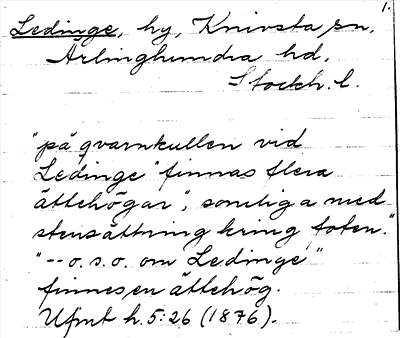 1.
Ledinge, by, Knivsta sn,
Ärlinghundra hd,
Stockh. l.
"på qvarnkullen vid
Ledinge" finnas flera
ättehögar", somliga med
stensättning kring foten."
"-- o.s.o. om Ledinge"
finnes en ättehög.
Ufmt h. 5:26 (1876).